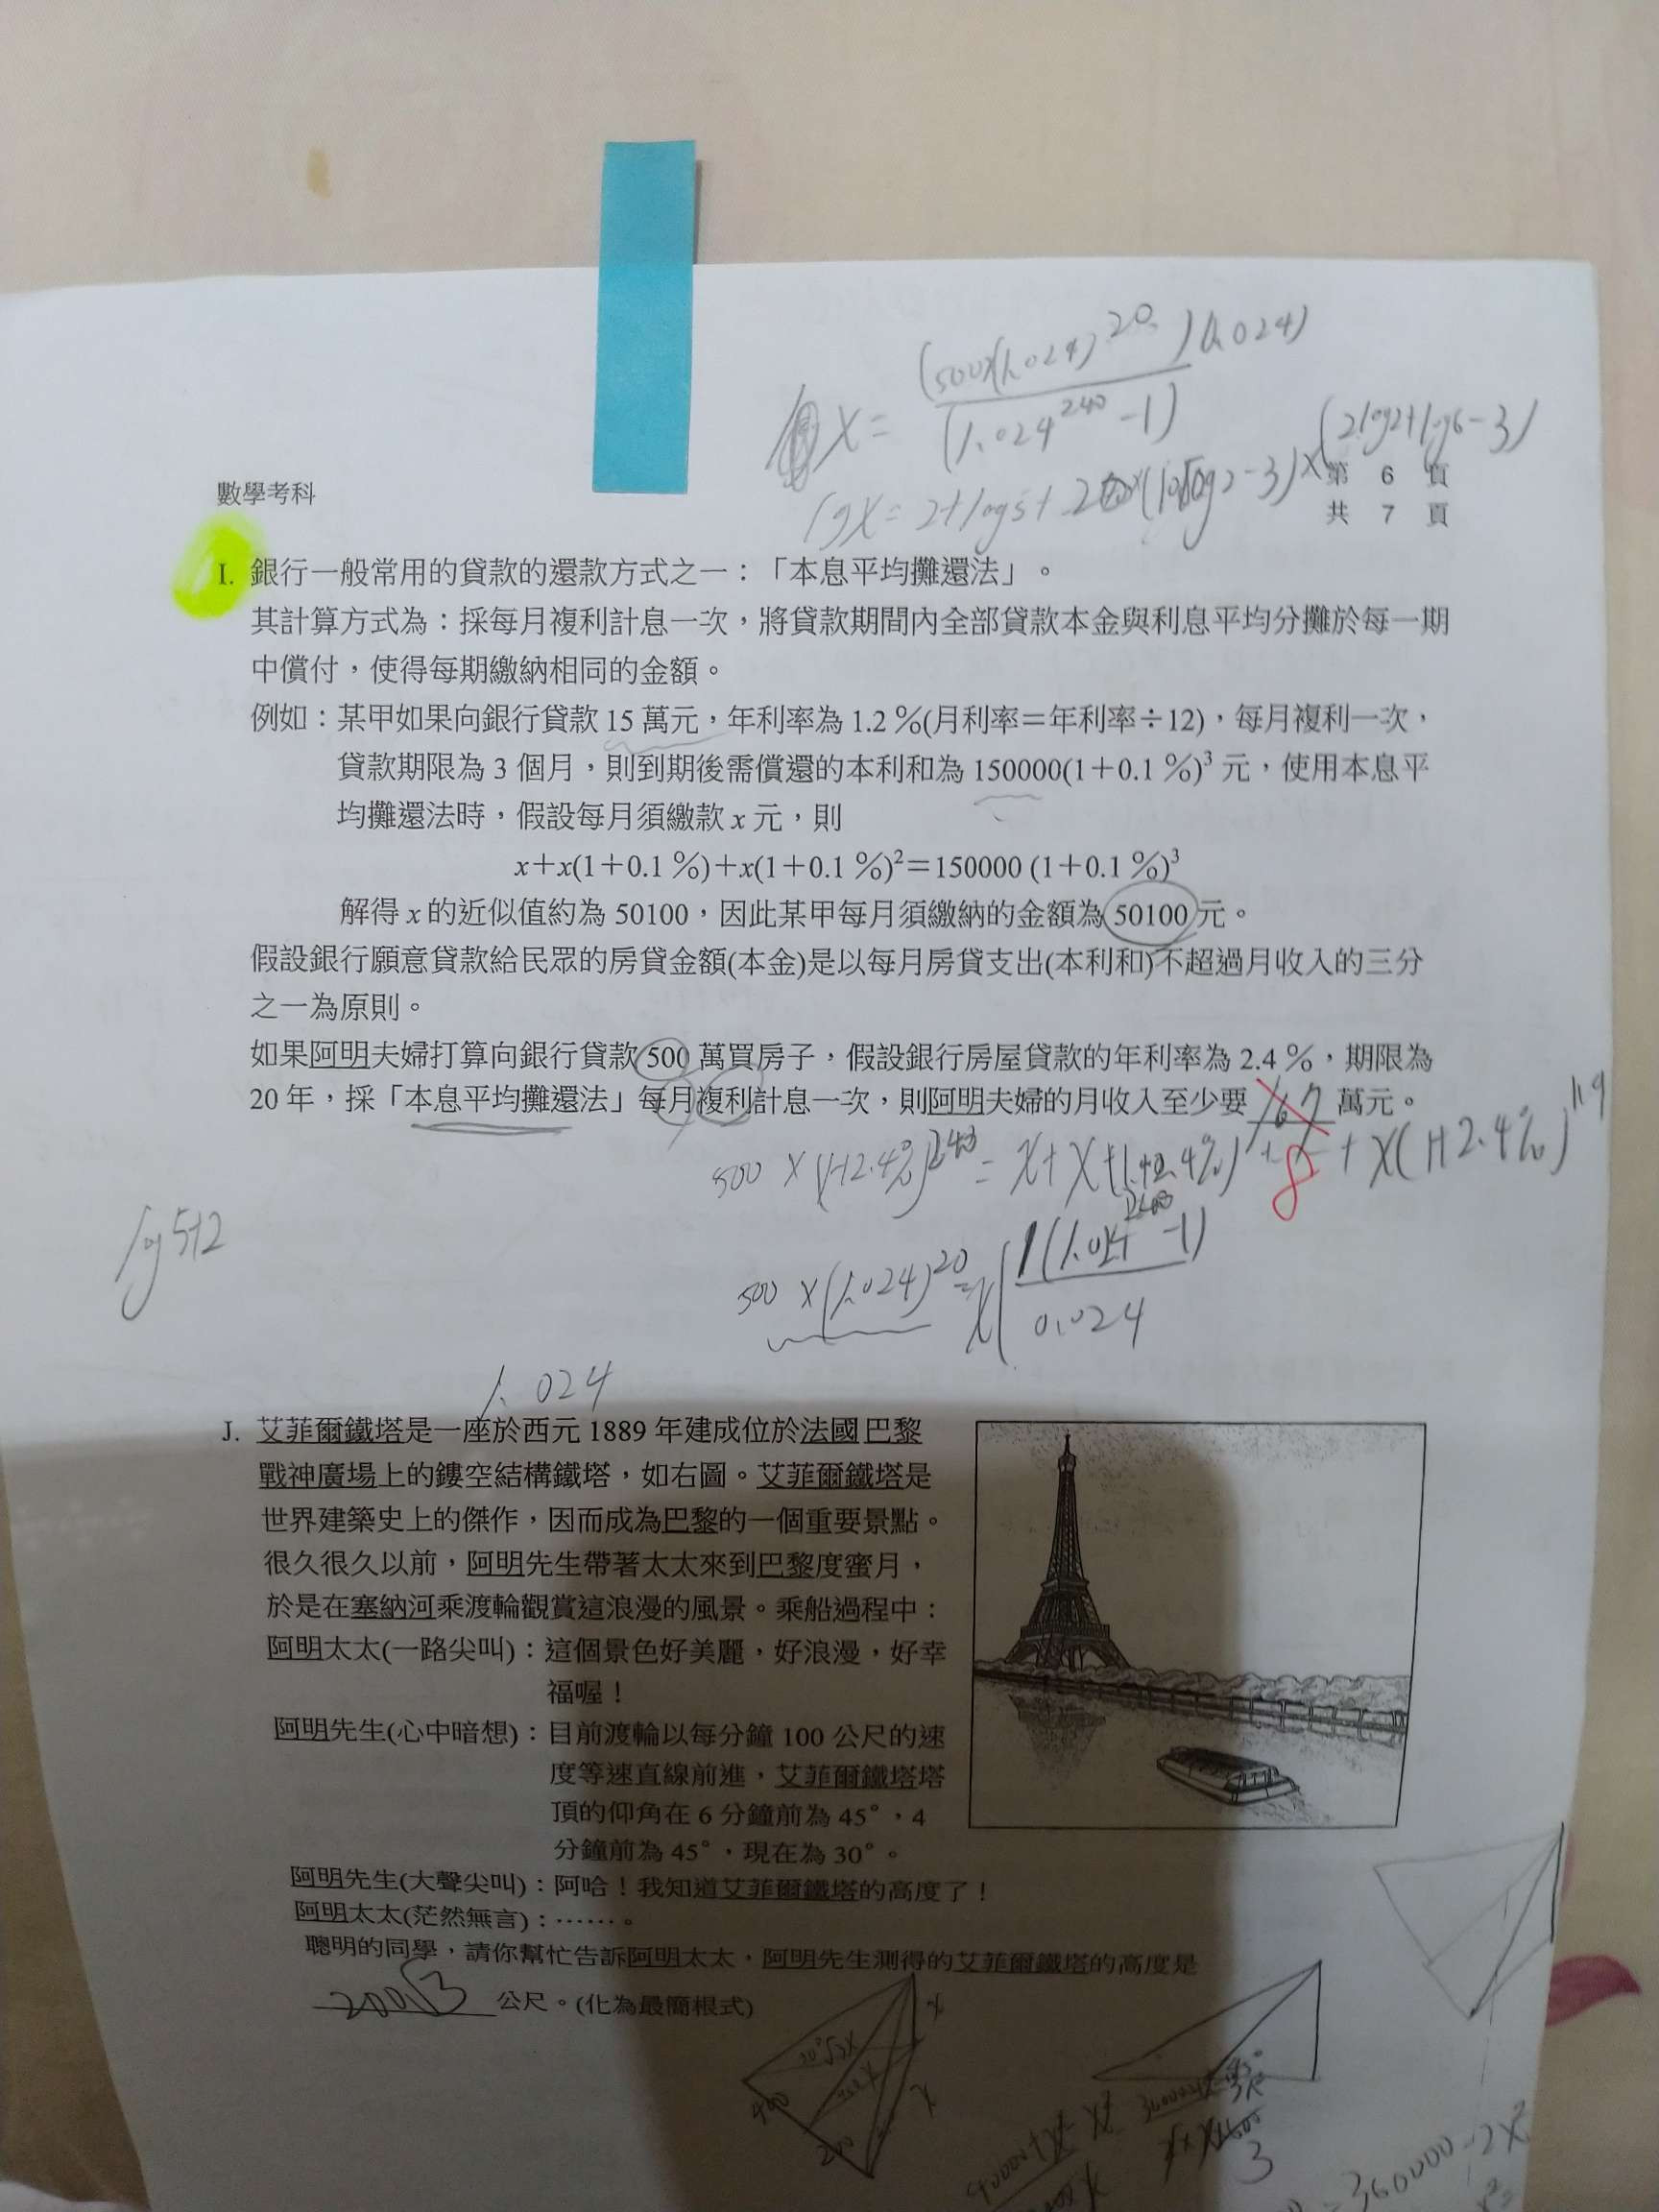 x = (500×(1.024)^20)(1.024) / (1.024^240 - 1)
(2log2+log6-3)
數學考科
第 6 頁
共 7 頁
I. 銀行一般常用的貸款的還款方式之一：「本息平均攤還法」。
其計算方式為：採每月複利計息一次，將貸款期間內全部貸款本金與利息平均分攤於每一期
中償付，使得每期繳納相同的金額。
例如：某甲如果向銀行貸款 15 萬元，年利率為 1.2 %(月利率＝年利率÷12)，每月複利一次，
貸款期限為 3 個月，則到期後需償還的本利和為 150000(1＋0.1 %)³ 元，使用本息平
均攤還法時，假設每月須繳款 x 元，則
x＋x(1＋0.1 %)＋x(1＋0.1 %)²＝150000 (1＋0.1 %)³
解得 x 的近似值約為 50100，因此某甲每月須繳納的金額為 50100 元。
假設銀行願意貸款給民眾的房貸金額(本金)是以每月房貸支出(本利和)不超過月收入的三分
之一為原則。
如果阿明夫婦打算向銀行貸款 500 萬買房子，假設銀行房屋貸款的年利率為 2.4 %，期限為
20 年，採「本息平均攤還法」每月複利計息一次，則阿明夫婦的月收入至少要 萬元。
8
log5+2
500 × (1.024)^20 = x( 1(1.024^240 -1) / 0.024
1.024
J. 艾菲爾鐵塔是一座於西元 1889 年建成位於法國巴黎
戰神廣場上的鏤空結構鐵塔，如右圖。艾菲爾鐵塔是
世界建築史上的傑作，因而成為巴黎的一個重要景點。
很久很久以前，阿明先生帶著太太來到巴黎度蜜月，
於是在塞納河乘渡輪觀賞這浪漫的風景。乘船過程中：
阿明太太(一路尖叫)：這個景色好美麗，好浪漫，好幸
福喔！
阿明先生(心中暗想)：目前渡輪以每分鐘 100 公尺的速
度等速直線前進，艾菲爾鐵塔塔
頂的仰角在 6 分鐘前為 45°，4
分鐘前為 45°，現在為 30°。
阿明先生(大聲尖叫)：阿哈！我知道艾菲爾鐵塔的高度了！
阿明太太(茫然無言)：……。
聰明的同學，請你幫忙告訴阿明太太，阿明先生測得的艾菲爾鐵塔的高度是
200√3 公尺。(化為最簡根式)
x
400
200
3